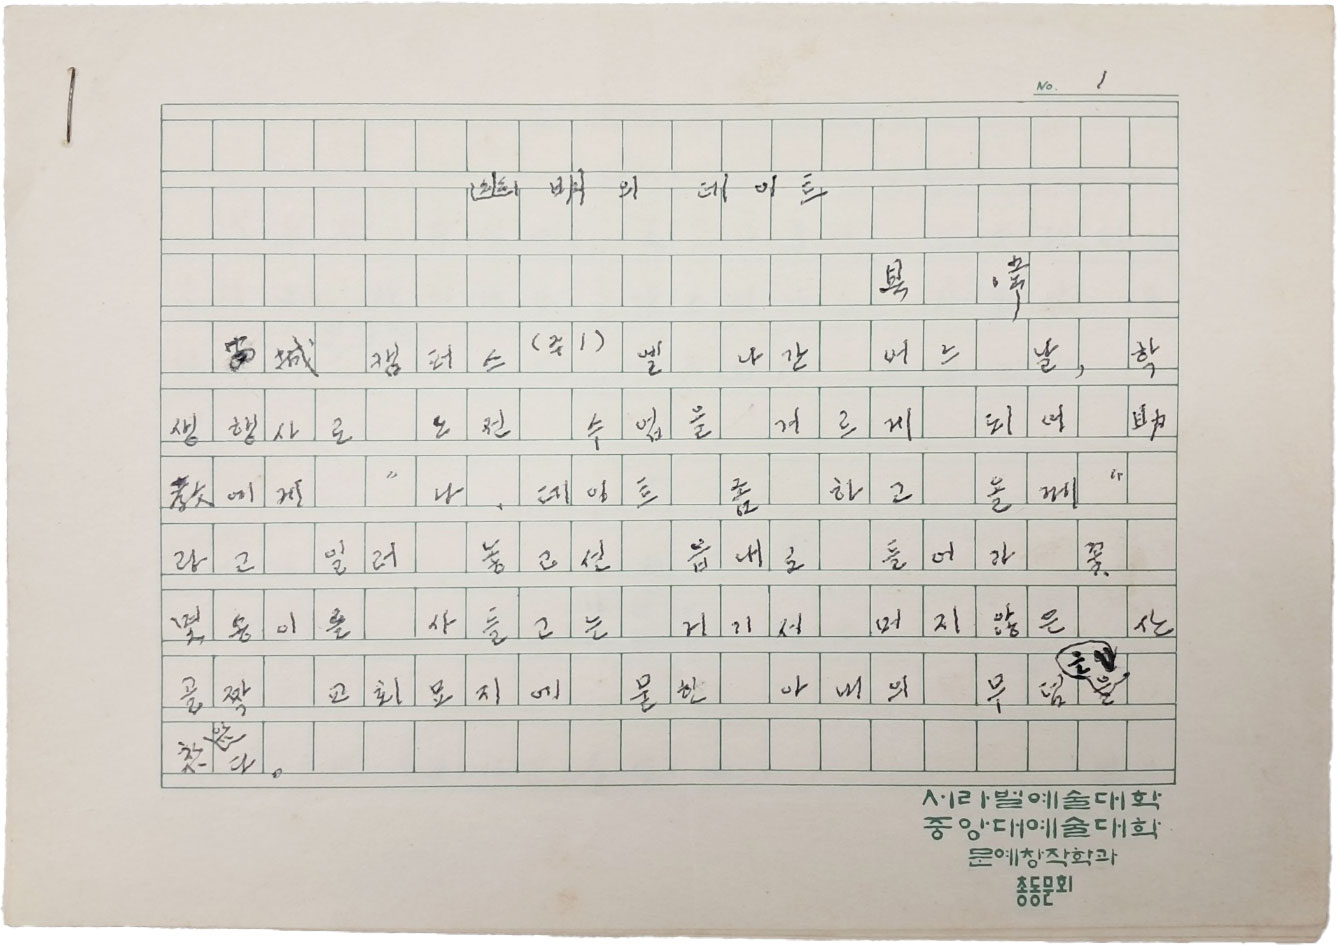 백의 데이트
安城 캠퍼스(주1)엘 나간 어느 날, 학
생행사로 오전 수업을 거르게 되어 助
敎에게 “나, 데이트 좀 하고 올께”
라고 일러 놓고선 읍내로 들어가 꽃
몇 송이를 사들고는 거기서 머지않은 산
골짝 교회묘지에 묻힌 아내의 무덤을
찾았다.
No. 1
서라벌예술대학
중앙대예술대학
문예창작학과
총동문회